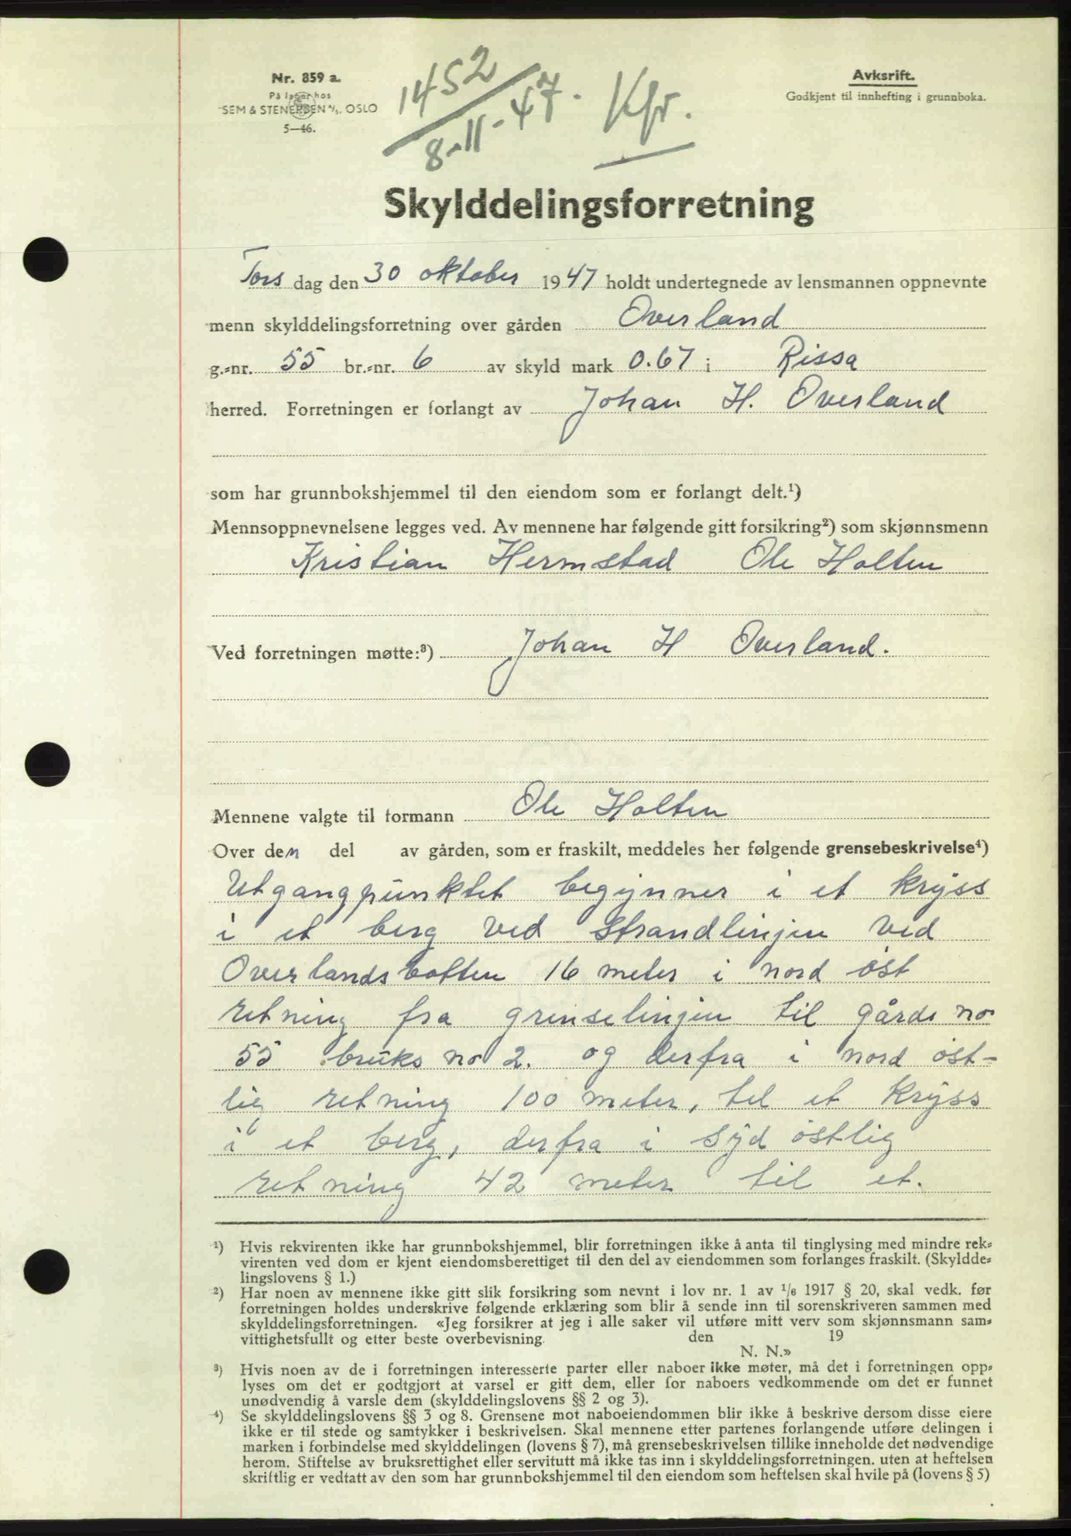 Nr. 859 a.
På lager hos
SEM & STENERSEN A/S. OSLO
5—46.
1452
8-11-47. Kfr.
Avksrift.
Godkjent til innhefting i grunnboka.
Skylddelingsforretning
Tors dag den 30 oktober 1947 holdt undertegnede av lensmannen oppnevnte
menn skylddelingsforretning over gården Overland
g.-nr. 55 br.-nr. 6 av skyld mark 0.67 i Rissa
herred. Forretningen er forlangt av Johan H. Overland
som har grunnbokshjemmel til den eiendom som er forlangt delt.¹)
Mennsoppnevnelsene legges ved. Av mennene har følgende gitt forsikring²) som skjønnsmenn
Kristian Hermstad Ole Holten
Ved forretningen møtte:³) Johan H Overland.
Mennene valgte til formann Ole Holten
Over den del av gården, som er fraskilt, meddeles her følgende grensebeskrivelse⁴)
Utgangpunktet begynner i et kryss
i et berg ved strandlinjen ved
Overlandsbotten 16 meter i nord øst
retning fra grenselinjen til gårds no.
55 bruks no 2. og derfra i nord øst-
lig retning 100 meter, til et kryss
i et berg, derfra i syd østlig
retning 42 meter til et.
¹) Hvis rekvirenten ikke har grunnbokshjemmel, blir forretningen ikke å anta til tinglysing med mindre rek-
virenten ved dom er kjent eiendomsberettiget til den del av eiendommen som forlanges fraskilt. (Skyldde-
lingslovens § 1.)
²) Har noen av mennene ikke gitt slik forsikring som nevnt i lov nr. 1 av 1/6 1917 § 20, skal vedk. før
forretningen holdes underskrive følgende erklæring som blir å sende inn til sorenskriveren sammen med
skylddelingsforretningen. «Jeg forsikrer at jeg i alle saker vil utføre mitt verv som skjønnsmann sam-
vittighetsfullt og etter beste overbevisning. den 19
N. N.»
³) Hvis noen av de i forretningen interesserte parter eller naboer ikke møter, må det i forretningen opp-
lyses om det er godtgjort at varsel er gitt dem, eller for naboers vedkommende om det er funnet
unødvendig å varsle dem (skylddelingslovens §§ 2 og 3).
⁴) Se skylddelingslovens §§ 3 og 8. Grensene mot naboeiendommen blir ikke å beskrive dersom disse eiere
ikke er til stede og samtykker i beskrivelsen. Skal mennene etter partenes forlangende utføre delingen i
marken i forbindelse med skylddelingen (lovens § 7), må grensebeskrivelsen tillike inneholde det nødvendige
herom. Stiftelse av bruksrettighet eller servitutt må ikke tas inn i skylddelingsforretningen. uten at heftelsen
skriftlig er vedtatt av den som har grunnbokshjemmel til den eiendom som heftelsen skal hvile på (lovens § 5)